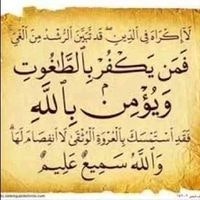 لَا إِكْرَاهَ فِي الدِّينِ ۖ قَد تَّبَيَّنَ الرُّشْدُ مِنَ الْغَيِّ ۚ
فَمَن يَكْفُرْ بِالطَّاغُوتِ
وَيُؤْمِن بِاللَّهِ
فَقَدِ اسْتَمْسَكَ بِالْعُرْوَةِ الْوُثْقَىٰ لَا انفِصَامَ لَهَا ۗ
وَاللَّهُ سَمِيعٌ عَلِيمٌ